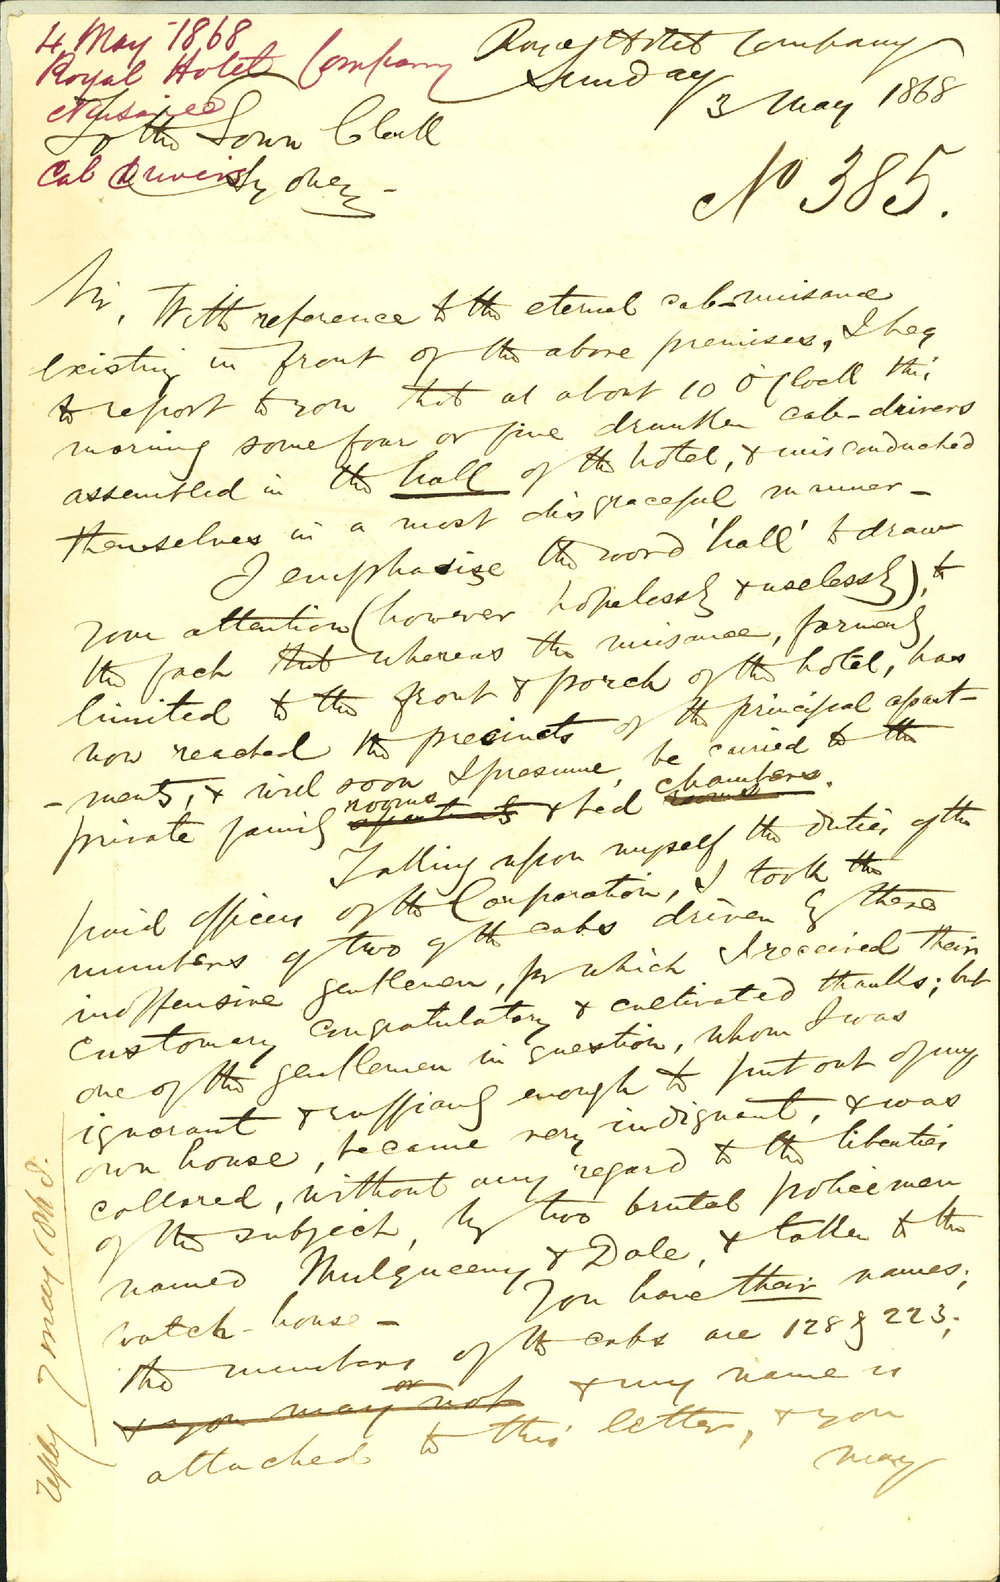 4 May 1868
Royal Hotel Company
Nuisance
Cab drivers
Royal Hotel Company
Sunday
3 May 1868
To the Town Clerk
Sydney –
No 385.
Sir, With reference to the eternal cab-nuisance
existing in front of the above premises, I beg
to report to you that at about 10 O'Clock this
morning some four or five drunken cab-drivers
assembled in the hall of the hotel, & misconducted
themselves in a most disgraceful manner –
I emphasize the word 'hall' to draw
your attention (however hopelessly & uselessly), to
the fact that whereas the nuisance, formerly
limited to the front & porch of the hotel, has
now reached the precincts of the principal apart-
-ments, & will soon I presume, be carried to the
private family rooms & bed chambers.
Taking upon myself the duties of the
paid officers of the Corporation, I took the
numbers of two of the cabs driven by these
inoffensive gentlemen, for which I received their
customary congratulatory & cultivated thanks; but
one of the gentlemen in question, whom I was
ignorant & ruffianly enough to put out of my
own house, became very indignant, & was
collared, without any regard to the liberties
of the subject, by two brutal policemen
named Mulqueeny & Dale, & taken to the
watch-house – You have their names;
the numbers of the cabs are 128 & 223;
& you may or not & my name is
attached to this letter, & you
may
reply 7 May 1868.